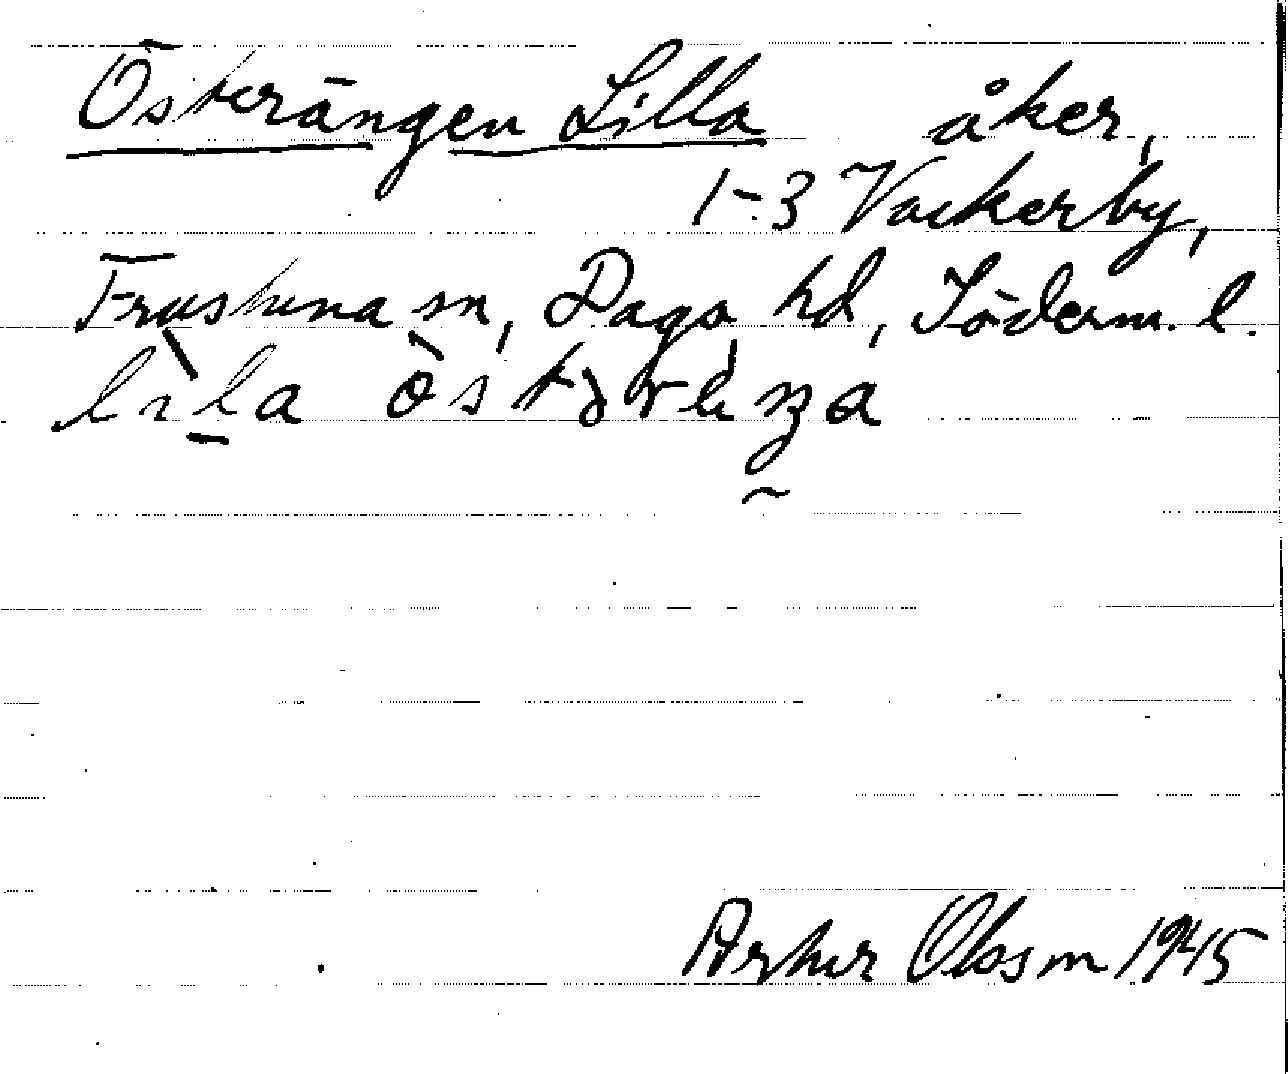 Österängen Lilla åker,
1-3 Vackerby,
Frustuna sn, Daga hd, Söderm. l.
Arthur Olsson 1945